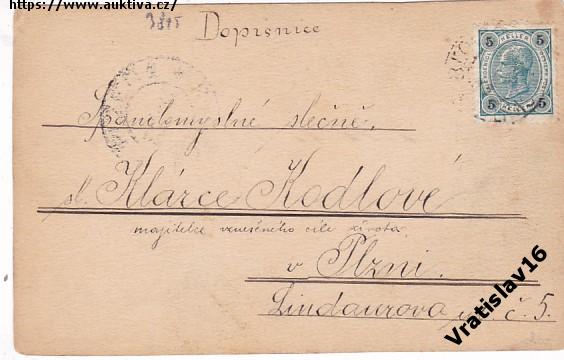 https://www.auktiva.cz/
3815
Dopisnice
5 HELLER 5
5 5
Spanilomyslné slečně,
sl. Klárce Kodlové
majitelce vznešeného cíle života
v Plzni.
Lindaurova ul. č. 5.
Vratislav16